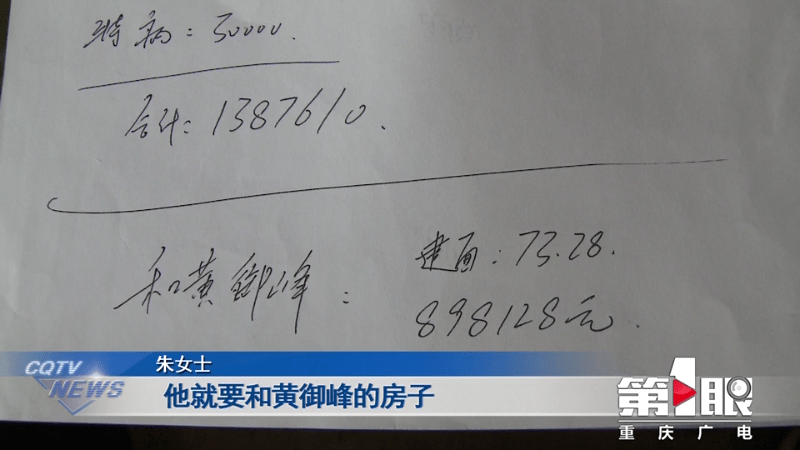 特病：50000.
合计：1387610.
和黄御峰：
建面：73.28.
898128元.
朱女士
CQTV
NEWS
他就要和黄御峰的房子
第1眼
重庆广电